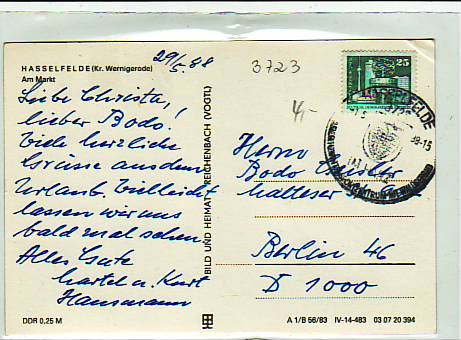 29/5.88
3723
HASSELFELDE (Kr. Wernigerode)
Am Markt
Liebe Christa,
lieber Bodo!
Viele herzliche
Grüsse aus dem
Urlaub. Vielleicht
lassen wir uns
bald mal sehen
Alles Gute
u. Kurt
Hansmann
DDR 0,25 M
BILD UND HEIMAT REICHENBACH (VOGTL)
25
4,-
HASSELFELDE
Herrn
Bodo
Malteser
Berlin 46
D 1000
A 1/B 56/83 IV-14-483 03 07 20 394